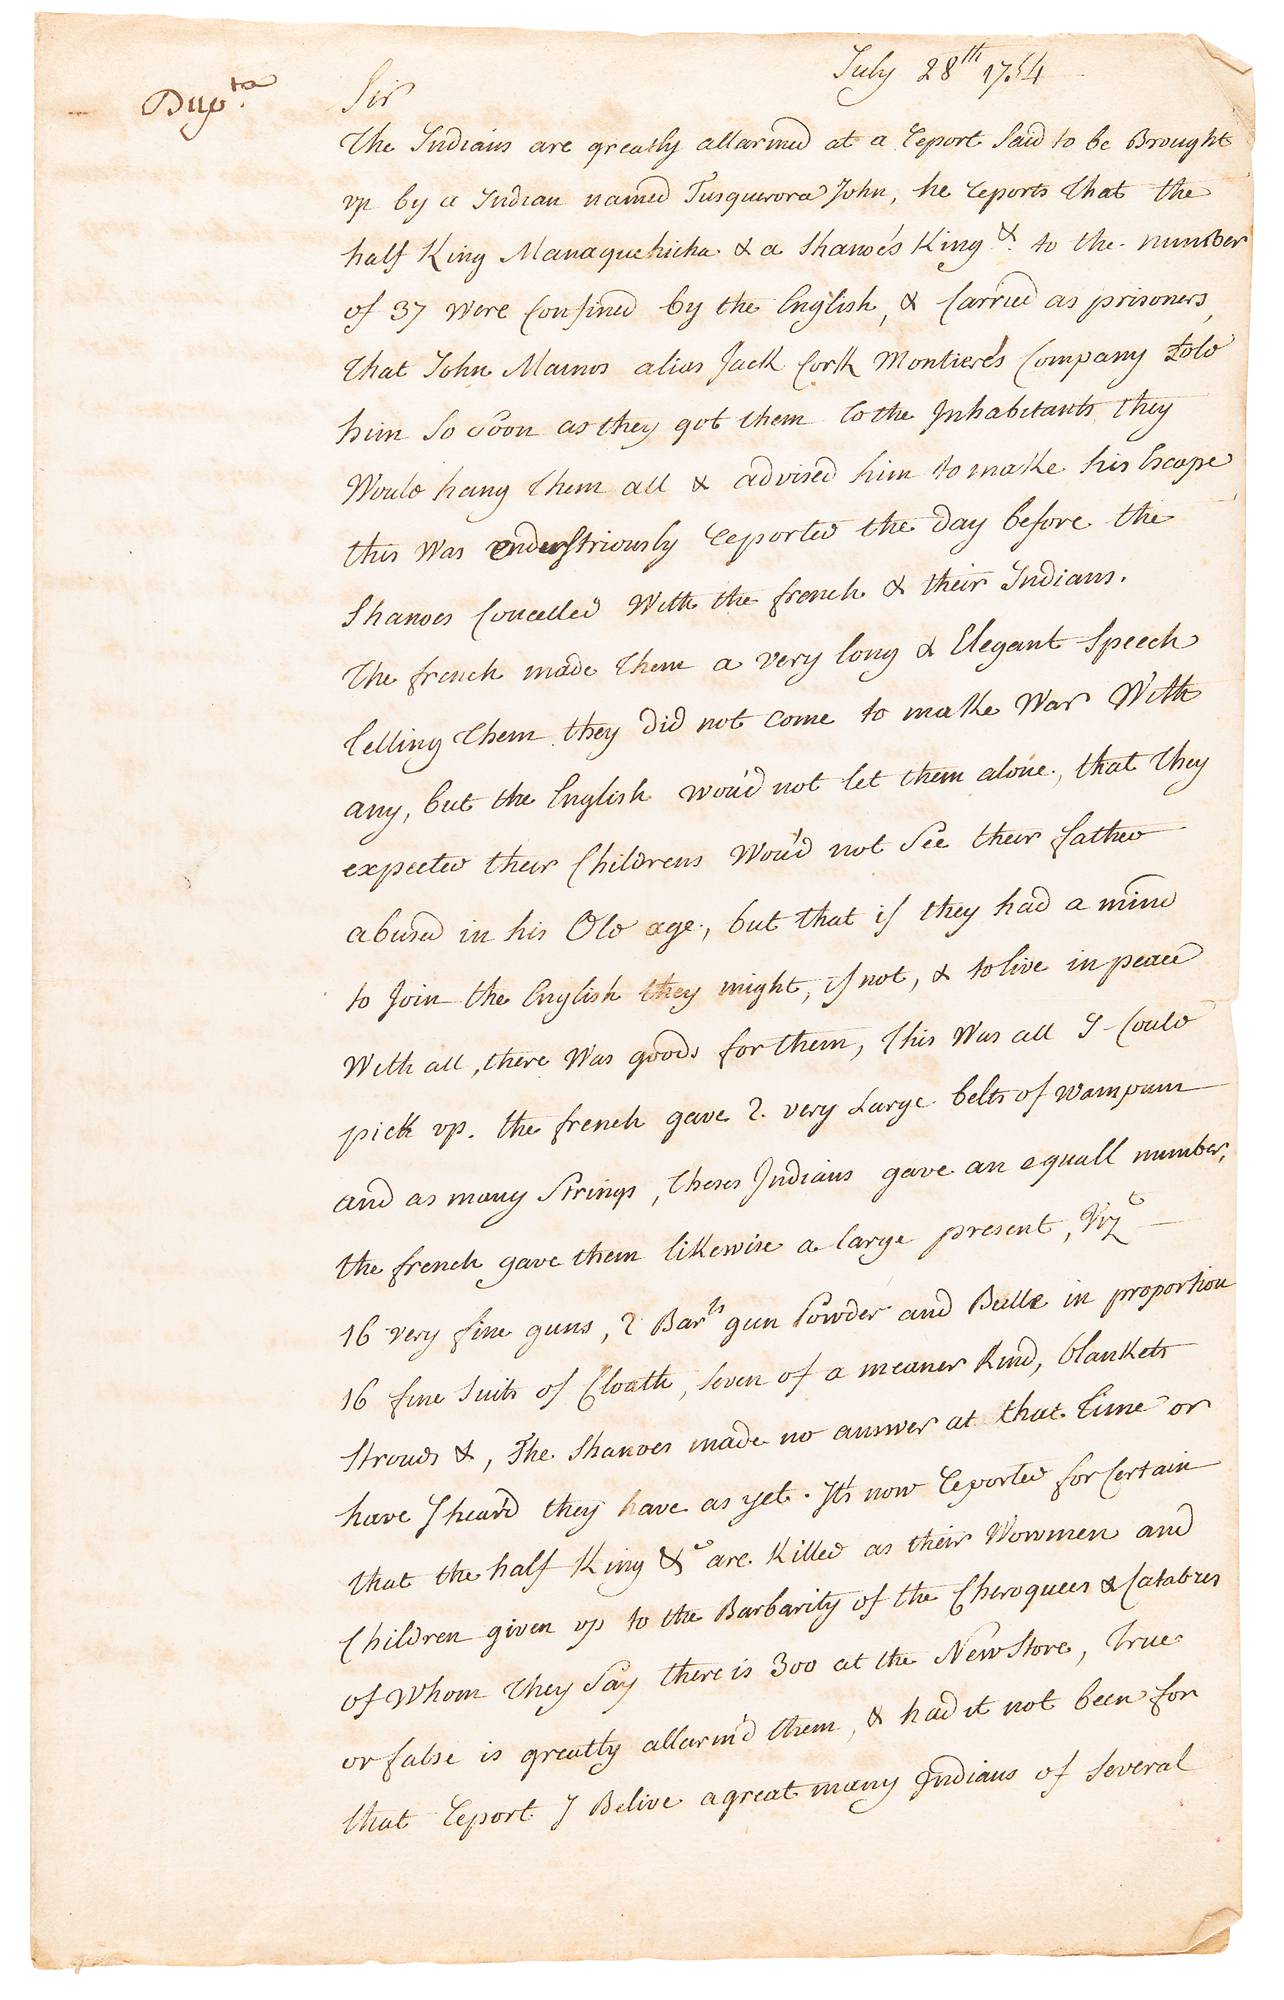 July 28th 1754
Dupta
Sir
The Indians are greatly allarmed at a report said to be Brought
up by a Indian named Tusquerora John, he reports that the
half King Manaquehicha & a Shanoe's King &c. to the number
of 37 were Confined by the English, & Carried as prisoners,
that John Mainos alias Jack Cork Montiere's Company told
him so soon as they got them to the Inhabitants they
Would hang them all & advised him to make his Escape
this was enderstriously reported the day before the
Shanoes Councelled With the french & their Indians.
The french made them a very long & Elegant Speech
telling them they did not come to make War With
any, but the English wou'd not let them alone, that they
expected their Childrens Wou'd not See their father
abused in his Old age, but that if they had a mind
to Join the English they might, if not, & to live in peace
With all, there was goods for them, this Was all I Could
pick up. the french gave 2 very Large belts of wampum
and as many Strings, theses Indians gave an equall number,
the french gave them likewise a large present, Vizt
16 very fine guns, 2 Barls gun Powder and Bulle in proportion
16 fine Suits of Cloath, Seven of a meaner Kind, blankets
Strouds &, The Shanoes made no answer at that time or
have I hear'd they have as yet. It's now reported for Certain
that the half King &c are Killed as their Wowmen and
Children given up to the Barbarity of the Cheroquees & Catabres
of Whom they Say there is 300 at the New Store, true
or false is greatly allarm'd them, & had it not been for
that report I Belive a great many Indians of Several